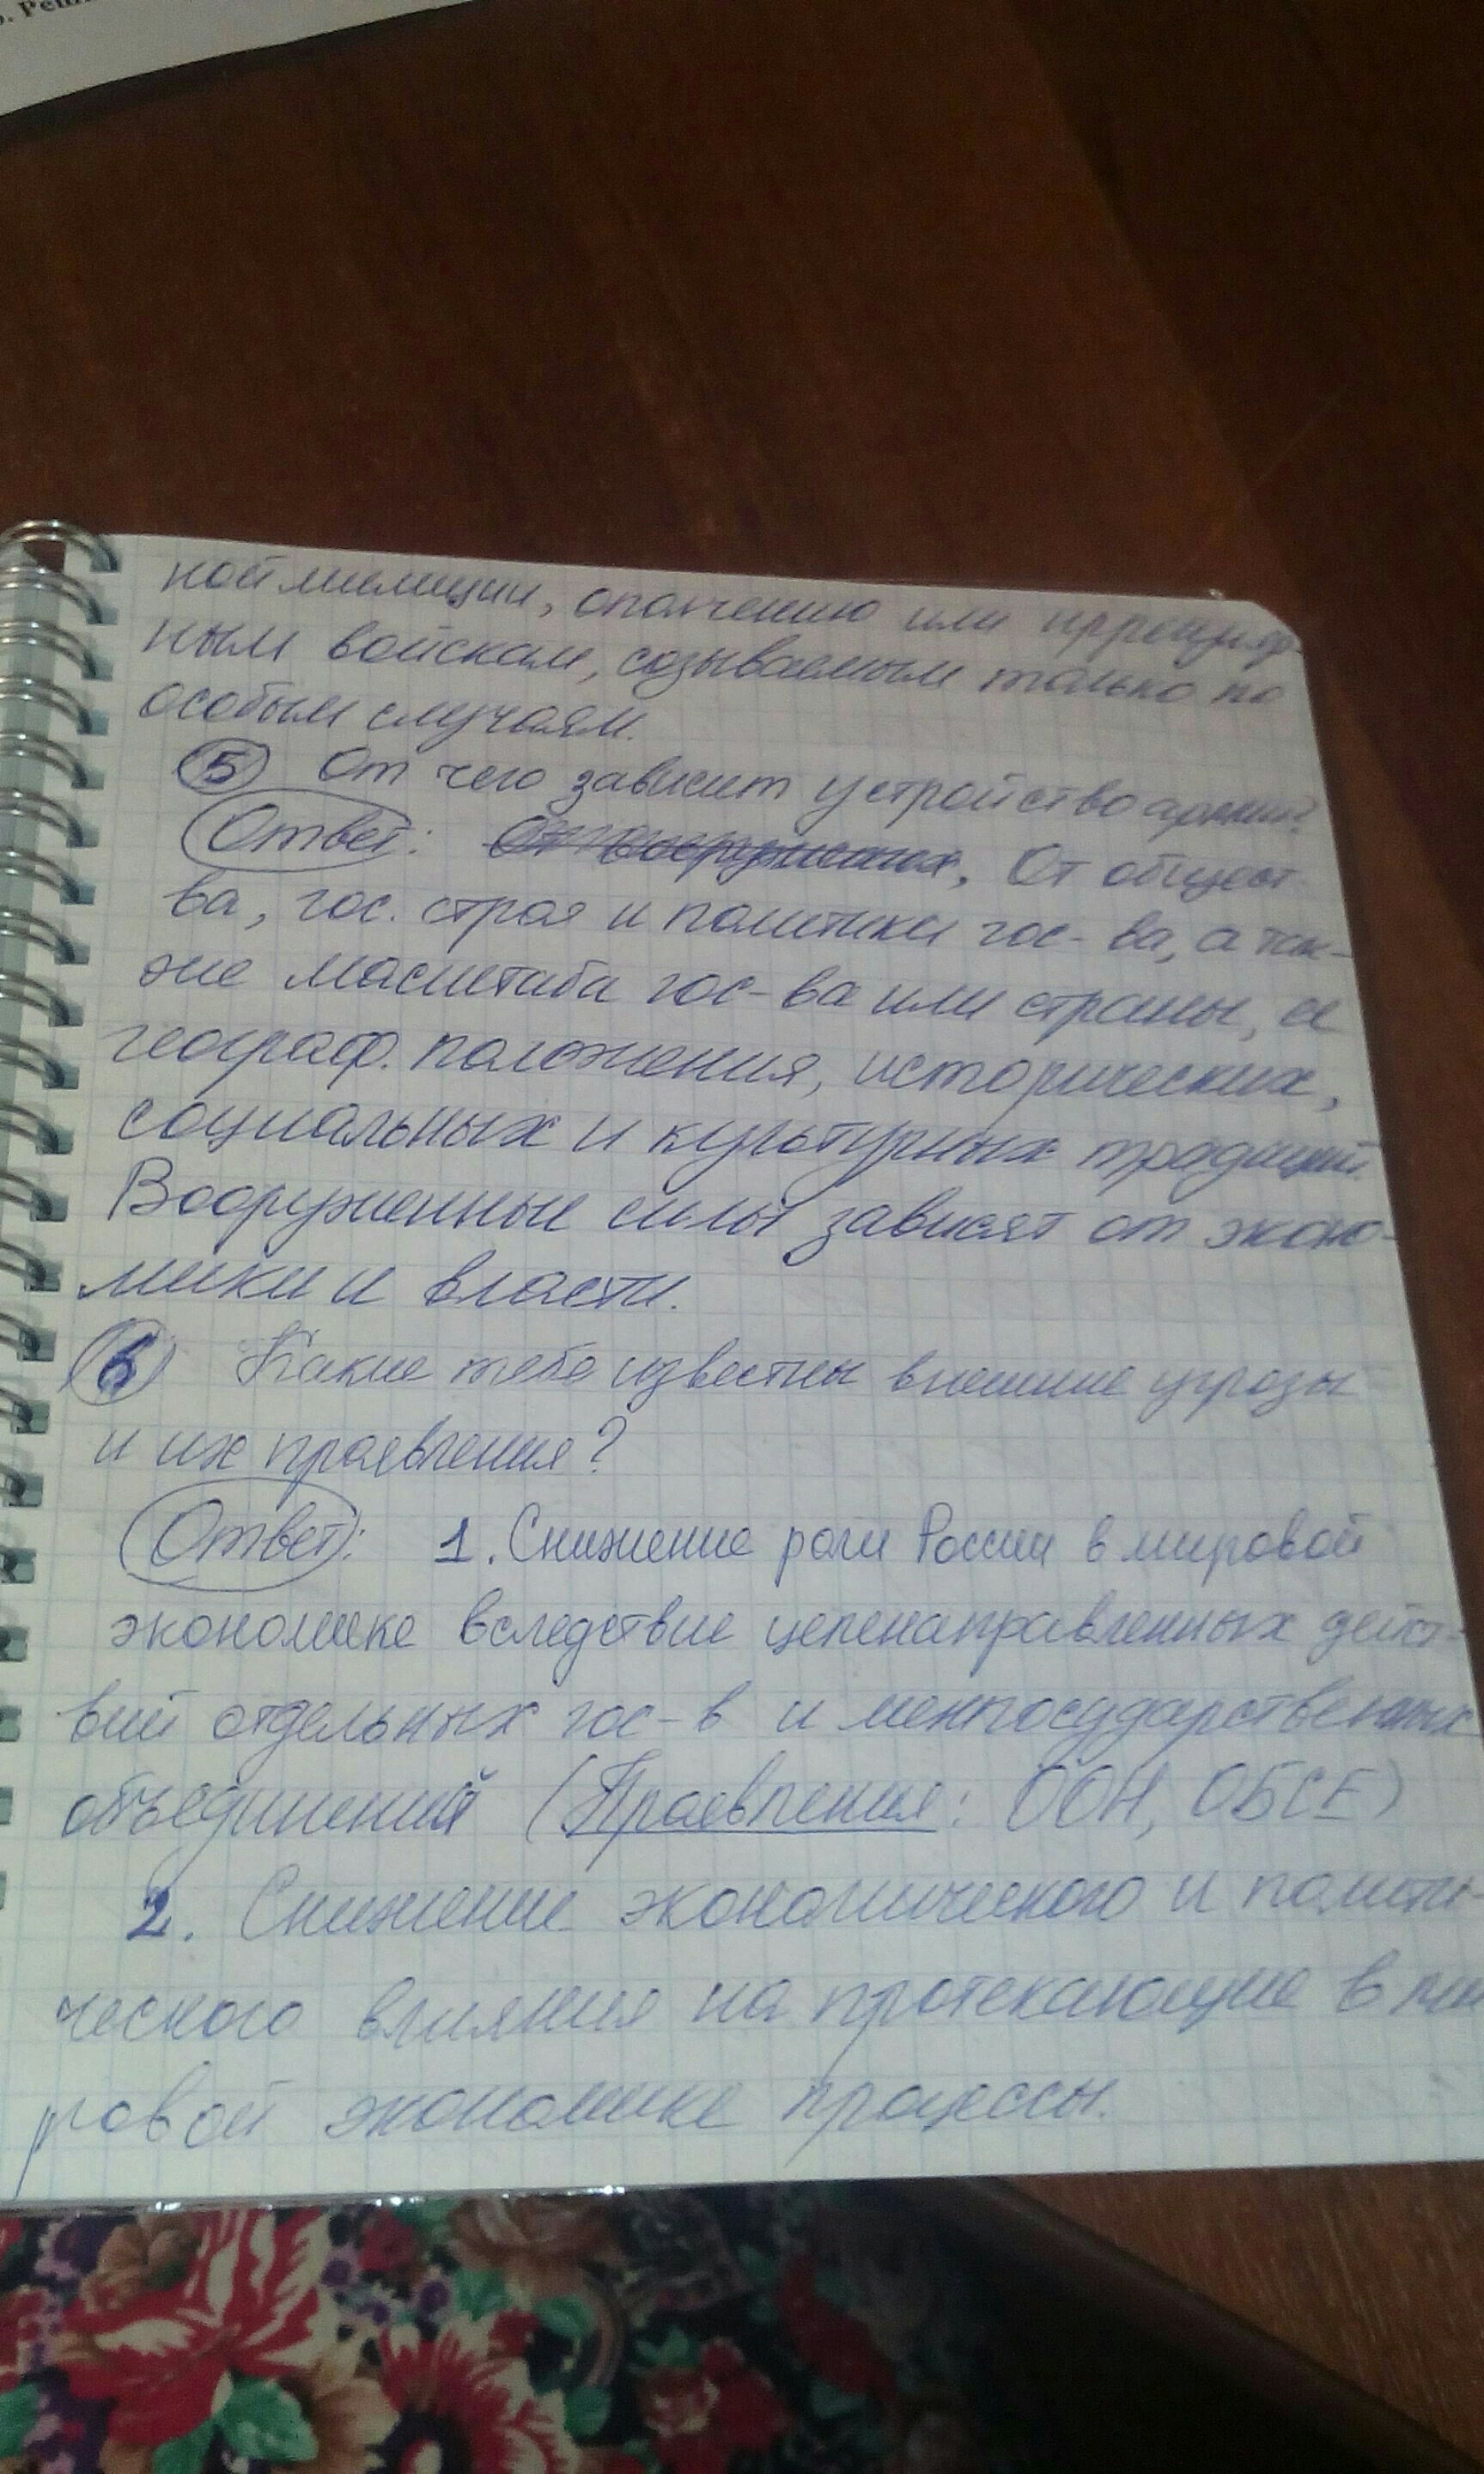 ной милиции, ополчению или иррегуляр-
ным войскам, созываемым только по
особым случаям.
5 От чего зависит устройство армии?
Ответ: От общест-
ва, гос. строя и политики гос-ва, а так-
же масштаба гос-ва или страны, ее
географ. положения, исторических,
социальных и культурных традиций.
Вооруженные силы зависят от эконо-
мики и власти.
6 Какие тебе известны внешние угрозы
и их проявления?
Ответ: 1. Снижение роли России в мировой
экономике вследствие целенаправленных дейст-
вий отдельных гос-в и межгосударственных
объединений (Проявления: ООН, ОБСЕ)
2. Снижение экономического и полити-
ческого влияния на протекающие в ми
ровой экономике процессы.